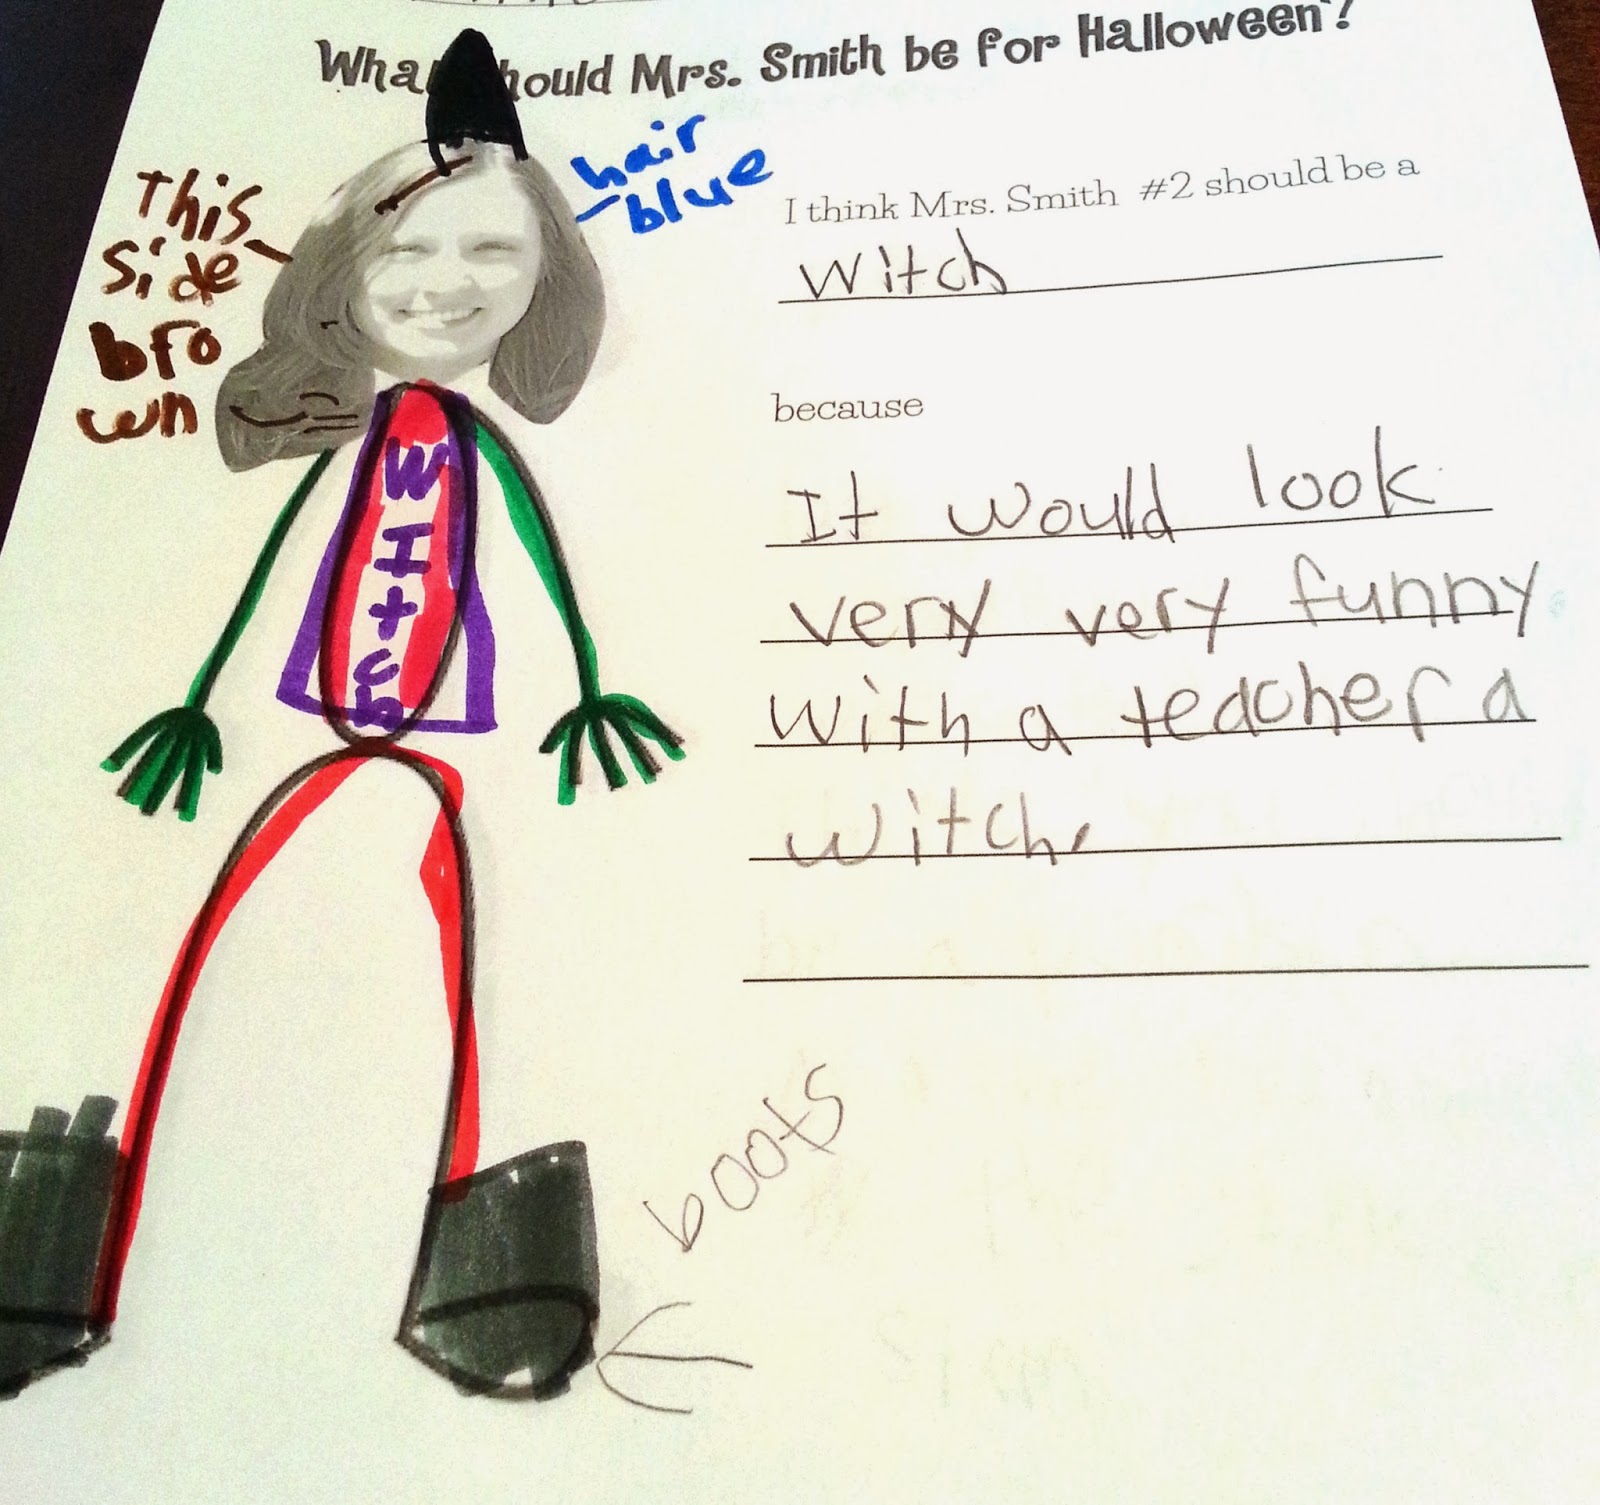 What should Mrs. Smith be for Halloween?
hair
blue
This
side
bro
wn
I think Mrs. Smith #2 should be a
witch
because
It would look
very very funny
with a teacher a
witch.
WItch
boots